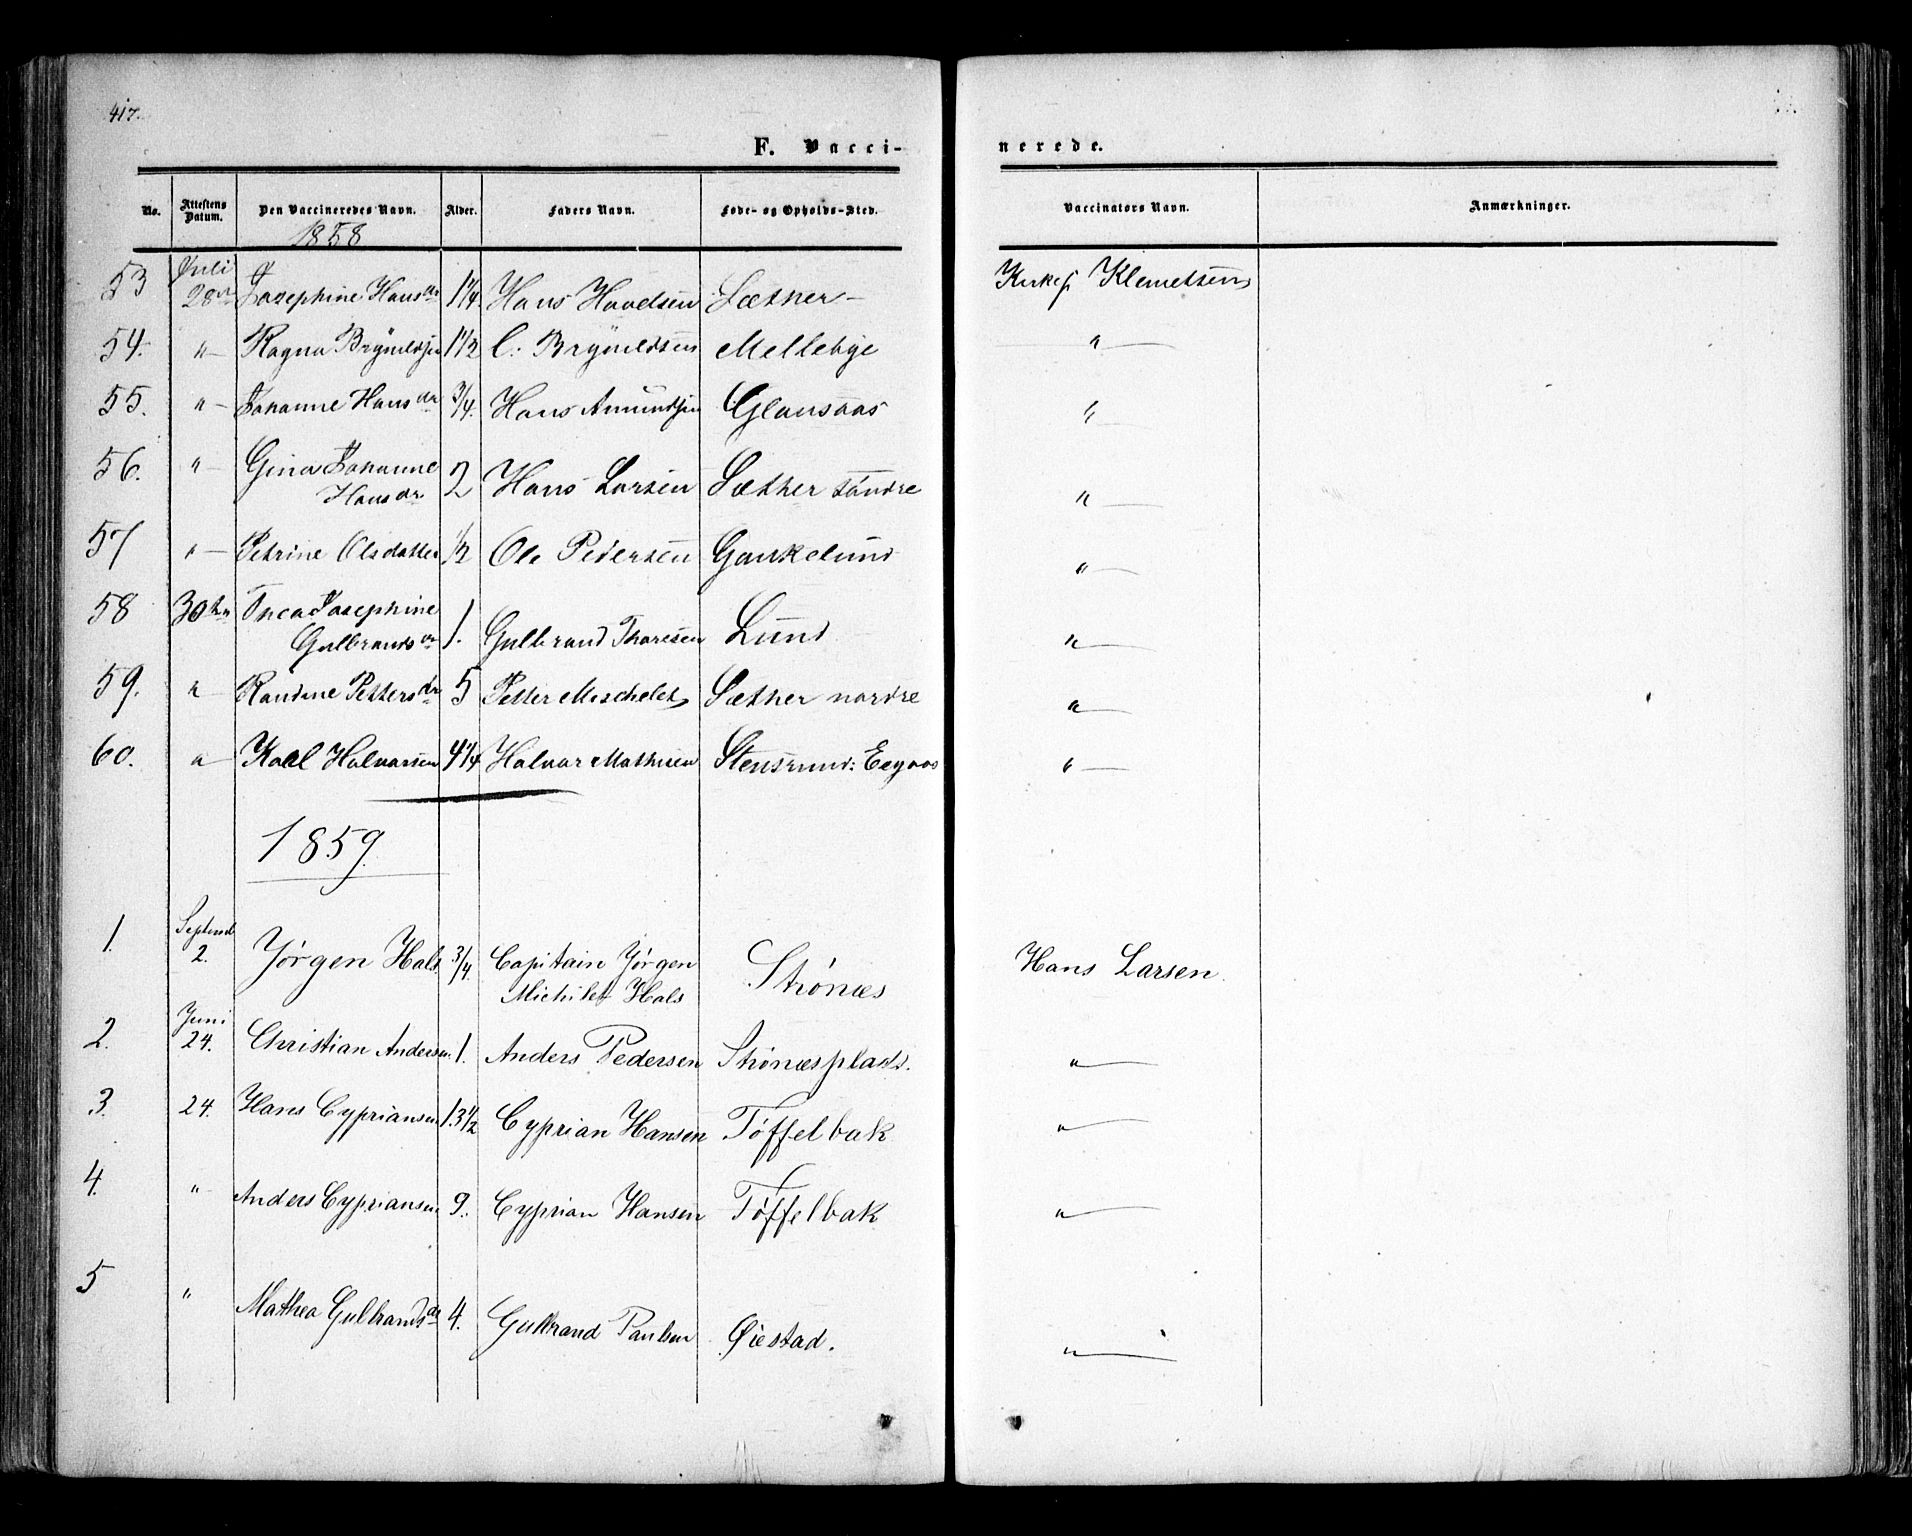 417.
F. Vacci-
nerede.
No. Attestens Datum. Den Vaccineredes Navn. Alder. Faders Navn. Føde- og Opholds-Sted. Vaccinators Navn. Anmærkninger.
1858
53 Juli 28de Josephine Hansdr 1 1/4 Hans Hovelsen Sæther – Kirkes. Klemetsen
54. " – Ragna Brynildsen 1 1/2 C. Brynildsen Mellebye " —
55. " – Johanne Hansdr 3/4. Hans Amundsen Glensaas " —
56. " – Gina Johanne
Hansdr 2 Hans Larsen Sæther søndre " —
57 " – Petrine Olsdatter 1/2 Ole Pedersen Gankelund " —
58 30te Josephine
Gulbrandsdr 1. Gulbrand Thoresen Lund " —
59. " – Randine Pettersdr 5 Petter Michelet Sæther nordre " —
60. " – Karl Halvorsen 4 1/4 Halvor Mathisen Stensrud: " —
1859.
1. Septemb 2. Jørgen Hals 3/4. Capitain Jørgen
Michelet Hals Strønæs Hans Larsen.
2. Juni 24. Christian Andersen 1. Anders Pedersen Strønæsplads. " —
3. 24. Hans Cypriansen 13 1/2 Cyprian Hansen Tøffelbak " —
4. " Anders Cypriansen 9. Cyprian Hansen Tøffelbak " —
5 " Mathea Gulbrandsdr 4. Gulbrand Paulsen Øiestad. " —